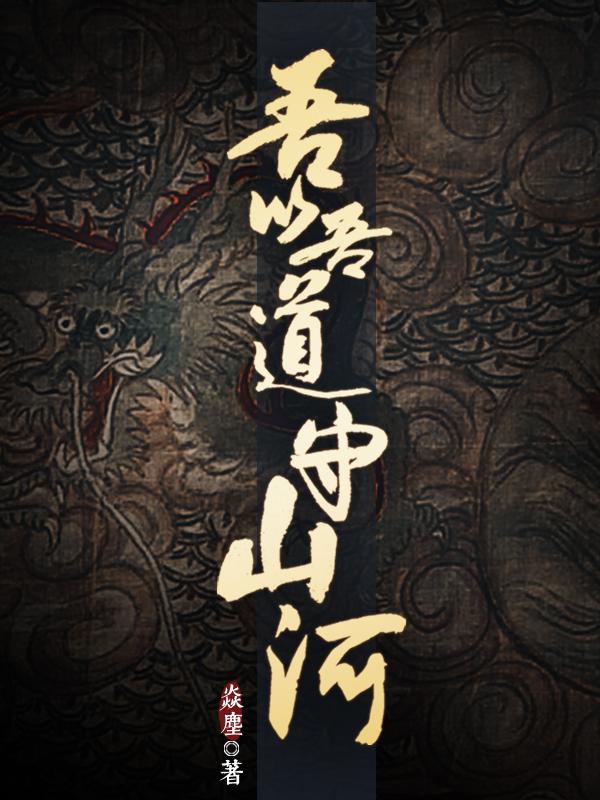 吾以吾道守山河
焱塵◎著